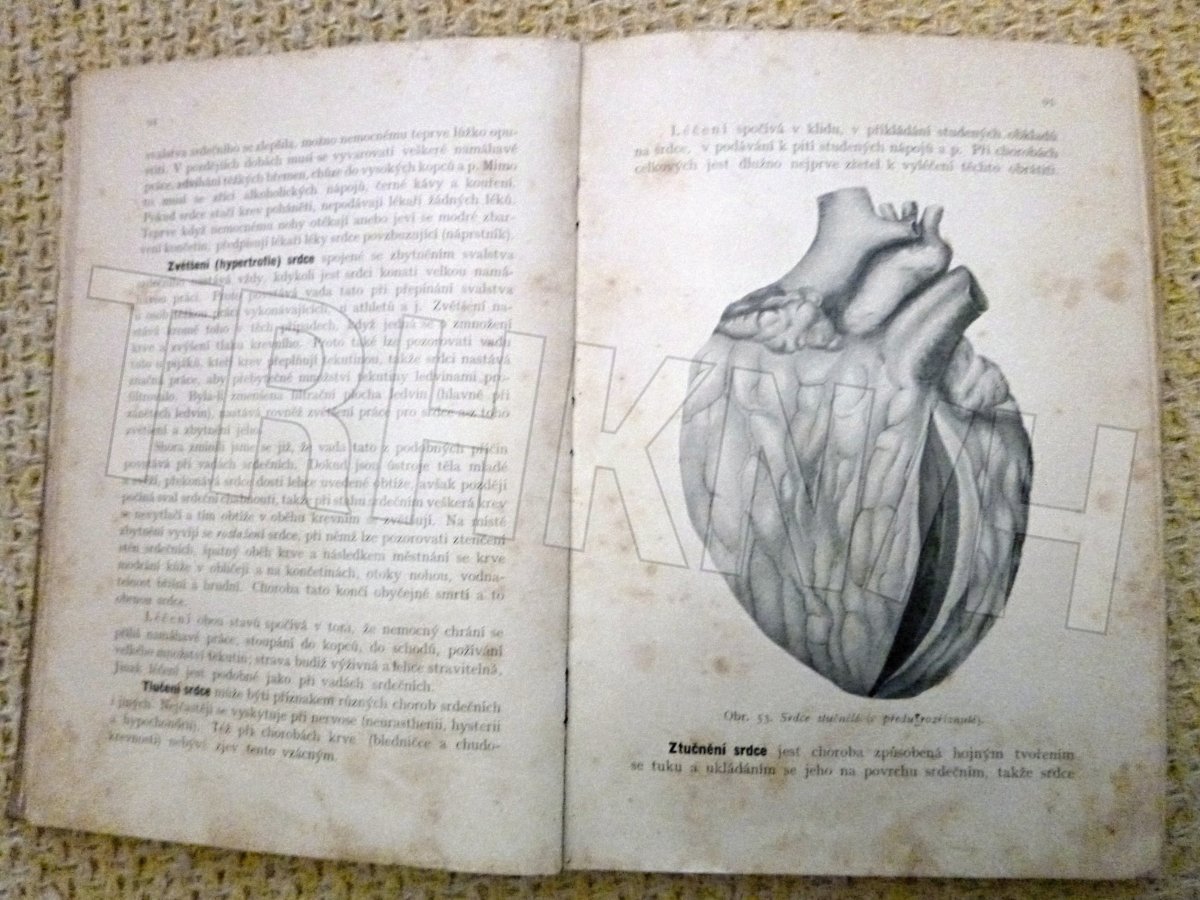 94
svalstva srdečního se zlepšila, možno nemocnému teprve lůžko opu-
stiti. V pozdějších dobách musí se vyvarovati veškeré namáhavé
práce, zdvihání těžkých břemen, chůze do vysokých kopců a p. Mimo
to musí se zříci alkoholických nápojů, černé kávy a kouření.
Pokud srdce stačí krev poháněti, nepodávají lékaři žádných léků.
Teprve když nemocnému nohy otékají anebo jeví se modré zbar-
vení končetin, předpisují lékaři léky srdce povzbuzující (náprstník).
Zvětšení (hypertrofie) srdce spojené se zbytněním svalstva
srdečního nastává vždy, kdykoli jest srdci konati velkou namá-
havou práci. Proto povstává vada tato při přepínání svalstva
u osob těžkou práci vykonávajících, u athletů a j. Zvětšení na-
stává kromě toho v těch případech, když jedná se o zmnožení
krve a zvýšení tlaku krevního. Proto také lze pozorovati vadu
tuto u pijáků, kteří krev přeplňují tekutinou, takže srdci nastává
značná práce, aby přebytečné množství tekutiny ledvinami pro-
filtrovalo. Byla-li zmenšena filtrační plocha ledvin (hlavně při
zánětech ledvin), nastává rovněž zvětšení práce pro srdce a z toho
zvětšení a zbytnění jeho.
Shora zmínili jsme se již, že vada tato z podobných příčin
povstává při vadách srdečních. Dokud jsou ústroje těla mladé
a svěží, překonává srdce dosti lehce uvedené obtíže, avšak později
počíná sval srdeční chabnouti, takže při stahu srdečním veškerá krev
se nevytlačí a tím obtíže v oběhu krevním se zvětšují. Na místě
zbytnění vyvíjí se roztažení srdce, při němž lze pozorovati ztenčení
stěn srdečních, špatný oběh krve a následkem městnání se krve
modrání kůže v obličeji a na končetinách, otoky nohou, vodna-
telnost břišní a hrudní. Choroba tato končí obyčejně smrtí a to
obrnou srdce.
Léčení obou stavů spočívá v tom, že nemocný chrání se
příliš namáhavé práce, stoupání do kopců, do schodů, požívání
velkého množství tekutin; strava budiž výživná a lehce stravitelná.
Jinak léčení jest podobné jako při vadách srdečních.
Tlučení srdce může býti příznakem různých chorob srdečních
i jiných. Nejčastěji se vyskytuje při nervose (neurasthenii, hysterii
a hypochondrii). Též při chorobách krve (bledničce a chudo-
krevnosti) nebývá zjev tento vzácným.
95
Léčení spočívá v klidu, v přikládání studených obkladů
na srdce, v podávání k pití studených nápojů a p. Při chorobách
celkových jest dlužno nejprve zřetel k vyléčení těchto obrátiti.
Obr. 53. Srdce ztučnělé (v předu rozříznuté).
Ztučnění srdce jest choroba způsobená hojným tvořením
se tuku a ukládáním se jeho na povrchu srdečním, takže srdce
TRHKNIH